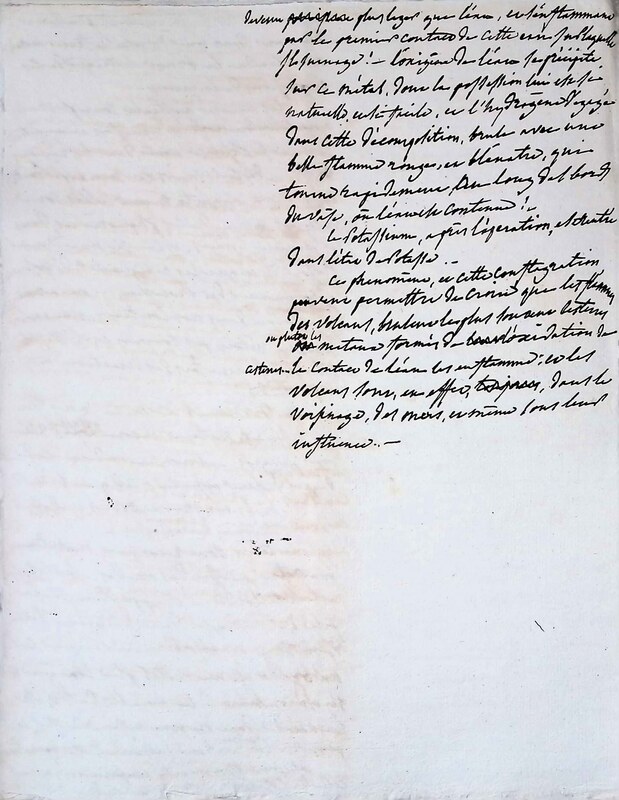 devenu plus leger que l'eau, et s'enflammant
par le premier contact de cette eau sur laquelle
il surnage! – l'oxigène de l'eau se précipite
sur ce métal, dont la possession lui est si
naturelle, et si facile, et l'hydrogène dégagé
dans cette décomposition, brule avec une
belle flamme rouge, et blanatre, qui
tourne rapidement, au long des bords
du vase, où l'eau est contenue! –
le Potassium, après l'operation, est rentré
dans l'etat de Potasse. –
Ce phenomène, et cette conflagration
peuvent permettre de croire que les flammes
des volcans, brulent le plus souvent les terres
ou plutot les
metaux formés de l'oxidation de
ces terres.. le contact de l'eau les enflamme: et les
volcans sont, en effet, dans le
voisinage, des mers, et même sous leur
influence.. –